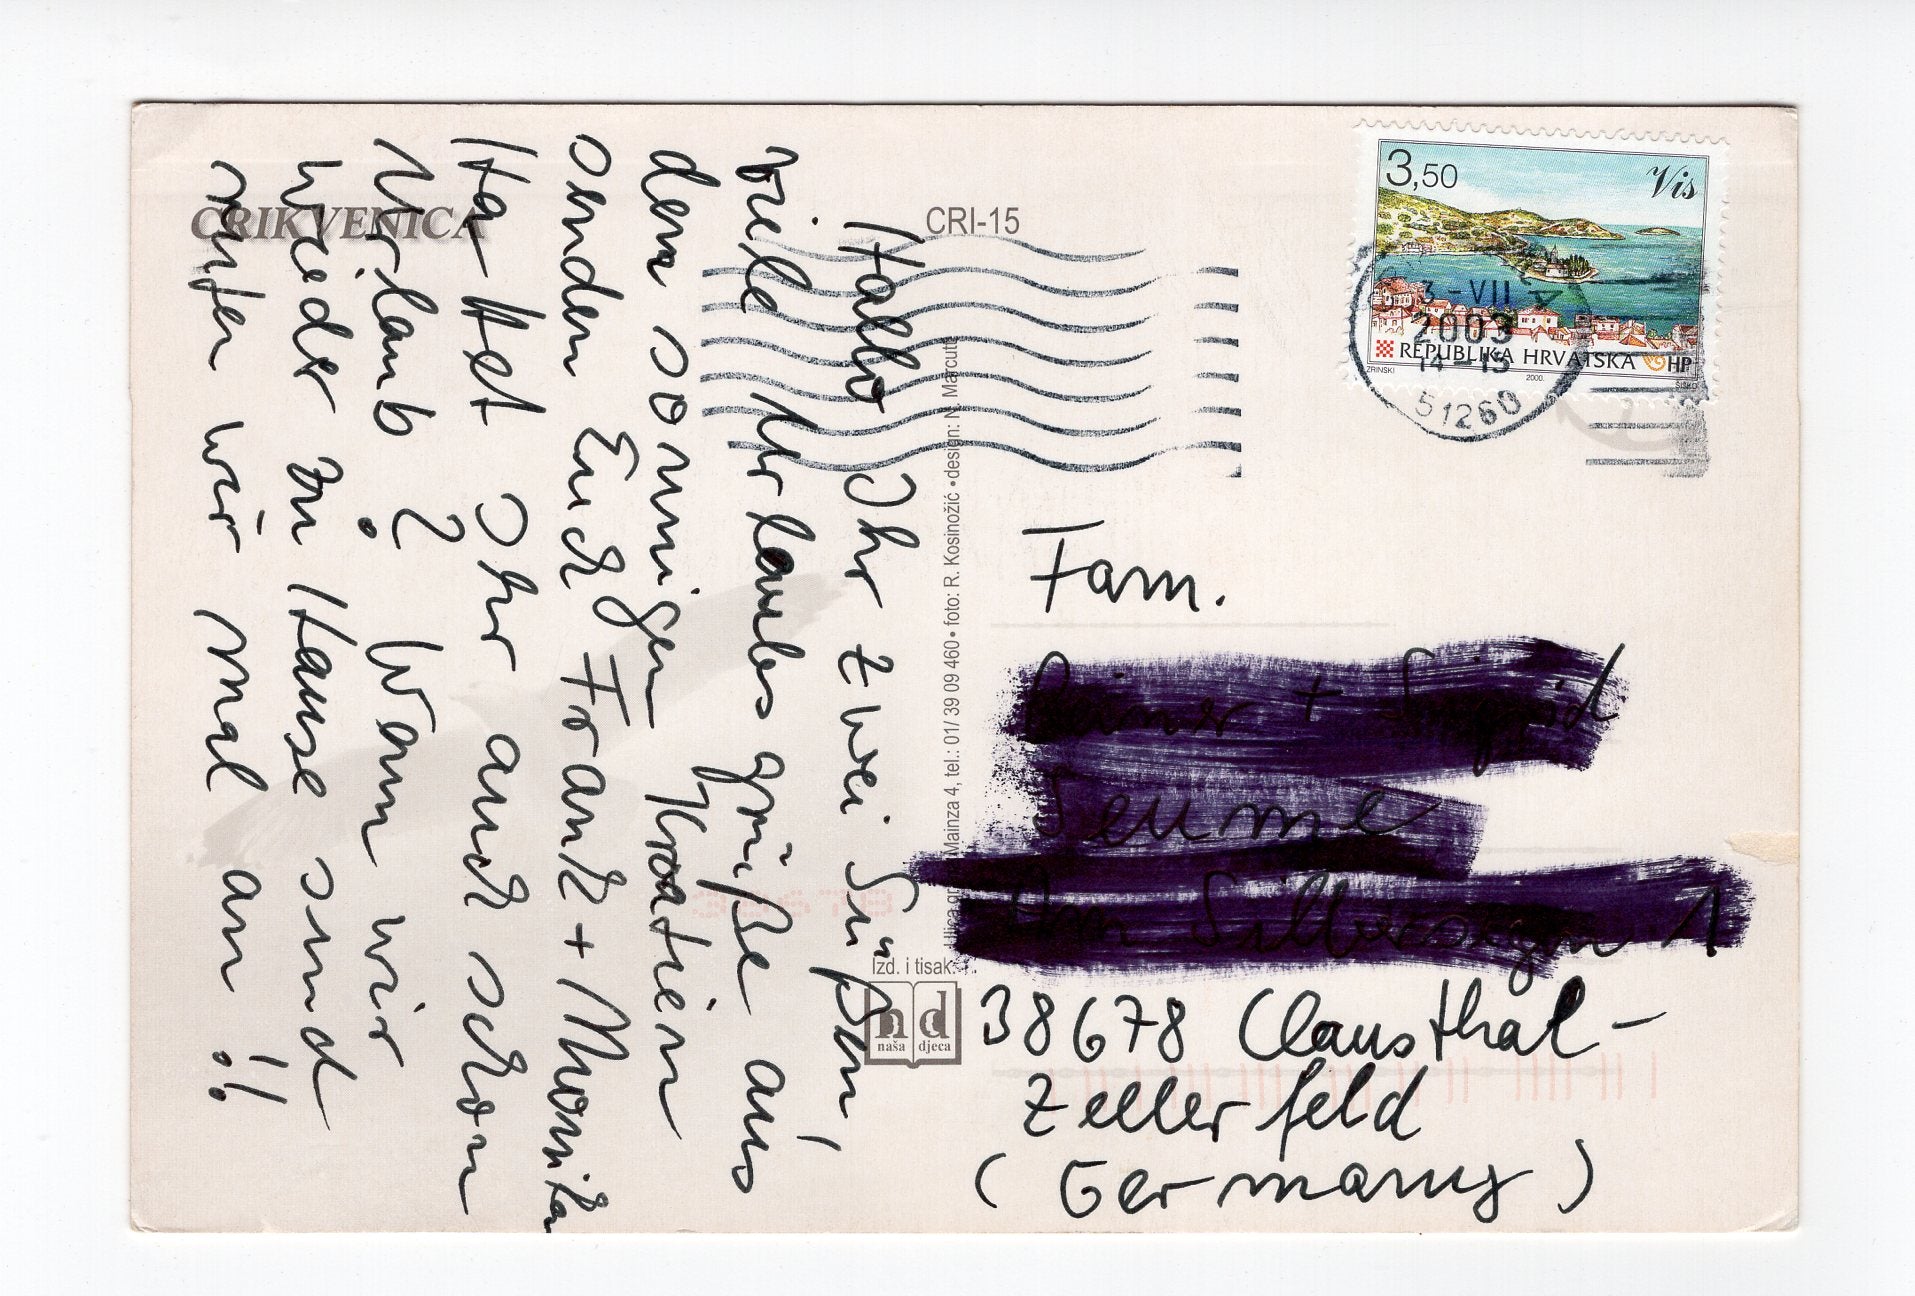 CRIKVENICA
CRI-15
Hallo Ihr zwei Süßen,
viele Urlaubsgrüße aus
dem sonnigen Kroatien
senden Euch Frank + Monika
Hattet Ihr auch schon
Urlaub? Wenn wir
wieder zu Hause sind
rufen wir mal an!!
Mainza 4, tel.: 01/ 39 09 460 • foto: R. Kosinožić • design: N. Marcuti
Izd. i tisak:
nd
naša djeca
3,50
Vis
REPUBLIKA HRVATSKA HP
ZRINSKI 2000. ŠIŠKO
3-VII
2003
14-15
51260
Fam.
38678 Clausthal-
Zellerfeld
(Germany)